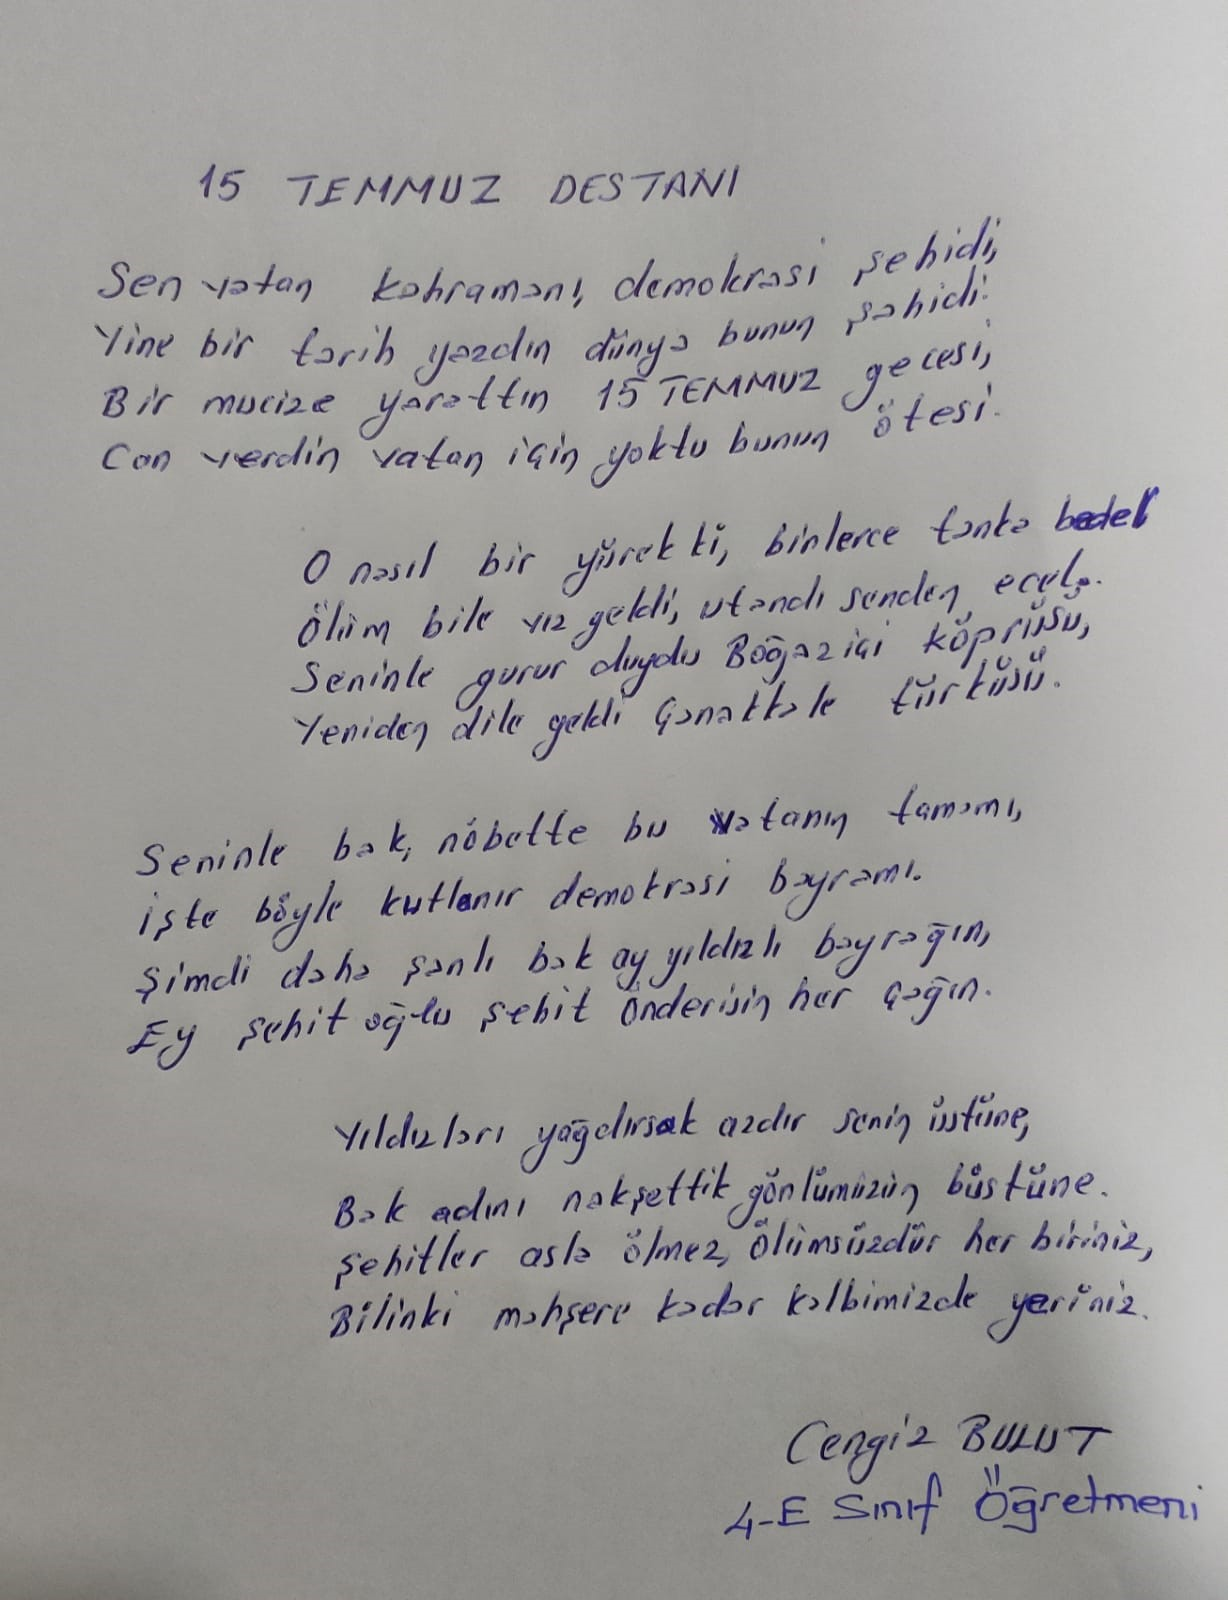 15 TEMMUZ DESTANI
Sen vatan kahramanı, demokrasi şehidi,
Yine bir tarih yazdın dünya bunun şahidi.
Bir mucize yarattın 15 TEMMUZ gecesi,
Can verdin vatan için yoktu bunun ötesi.
O nasıl bir yürekti, binlerce tanka bedel
Ölüm bile vız geldi, utandı senden ecel.
Seninle gurur duydu Boğaziçi köprüsü,
Yeniden dile geldi Çanakkale türküsü.
Seninle bak, nöbette bu vatanın tamamı,
İşte böyle kutlanır demokrasi bayramı.
Şimdi daha şanlı bak ay yıldızlı bayrağın,
Ey şehit oğlu şehit önderisin her çağın.
Yıldızları yağdırsak azdır senin üstüne,
Bak adını nakşettik gönlümüzün büstüne.
Şehitler asla ölmez, ölümsüzdür her biriniz,
Bilinki mahşere kadar kalbimizde yeriniz.
Cengiz BULUT
4-E Sınıf Öğretmeni